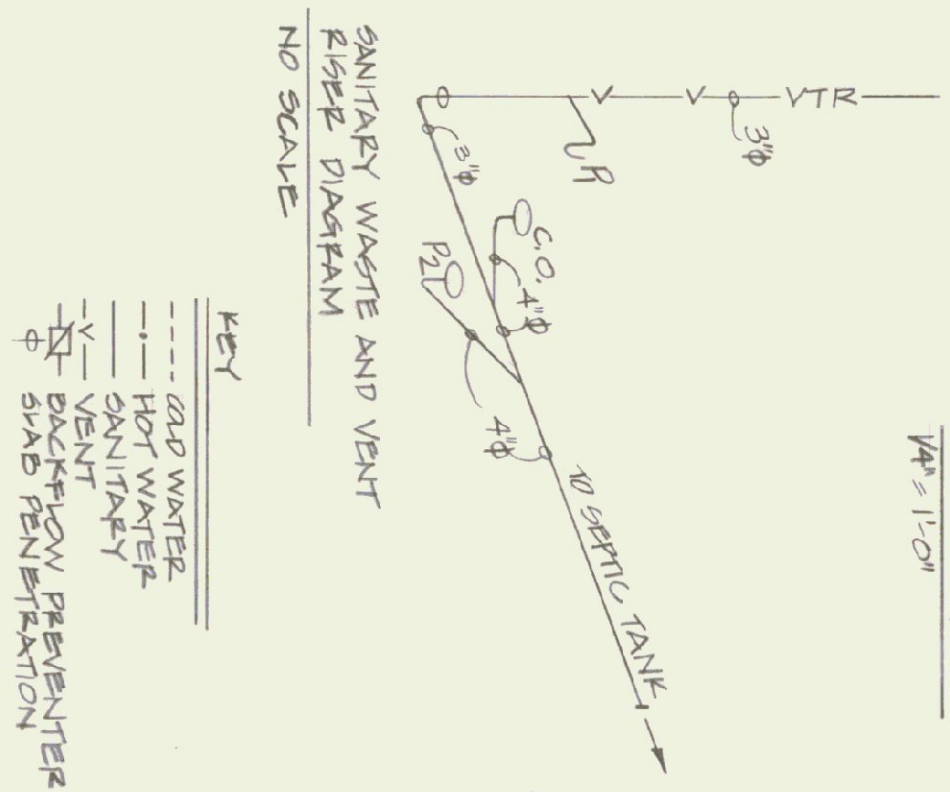 1/4" = 1'-0"
VTR
3"φ
V
V
P1
TO SEPTIC TANK
C.O.
4"φ
3"φ
P2
4"φ
SANITARY WASTE AND VENT
RISER DIAGRAM
NO SCALE
KEY
COLD WATER
HOT WATER
SANITARY
V VENT
BACKFLOW PREVENTER
SLAB PENETRATION